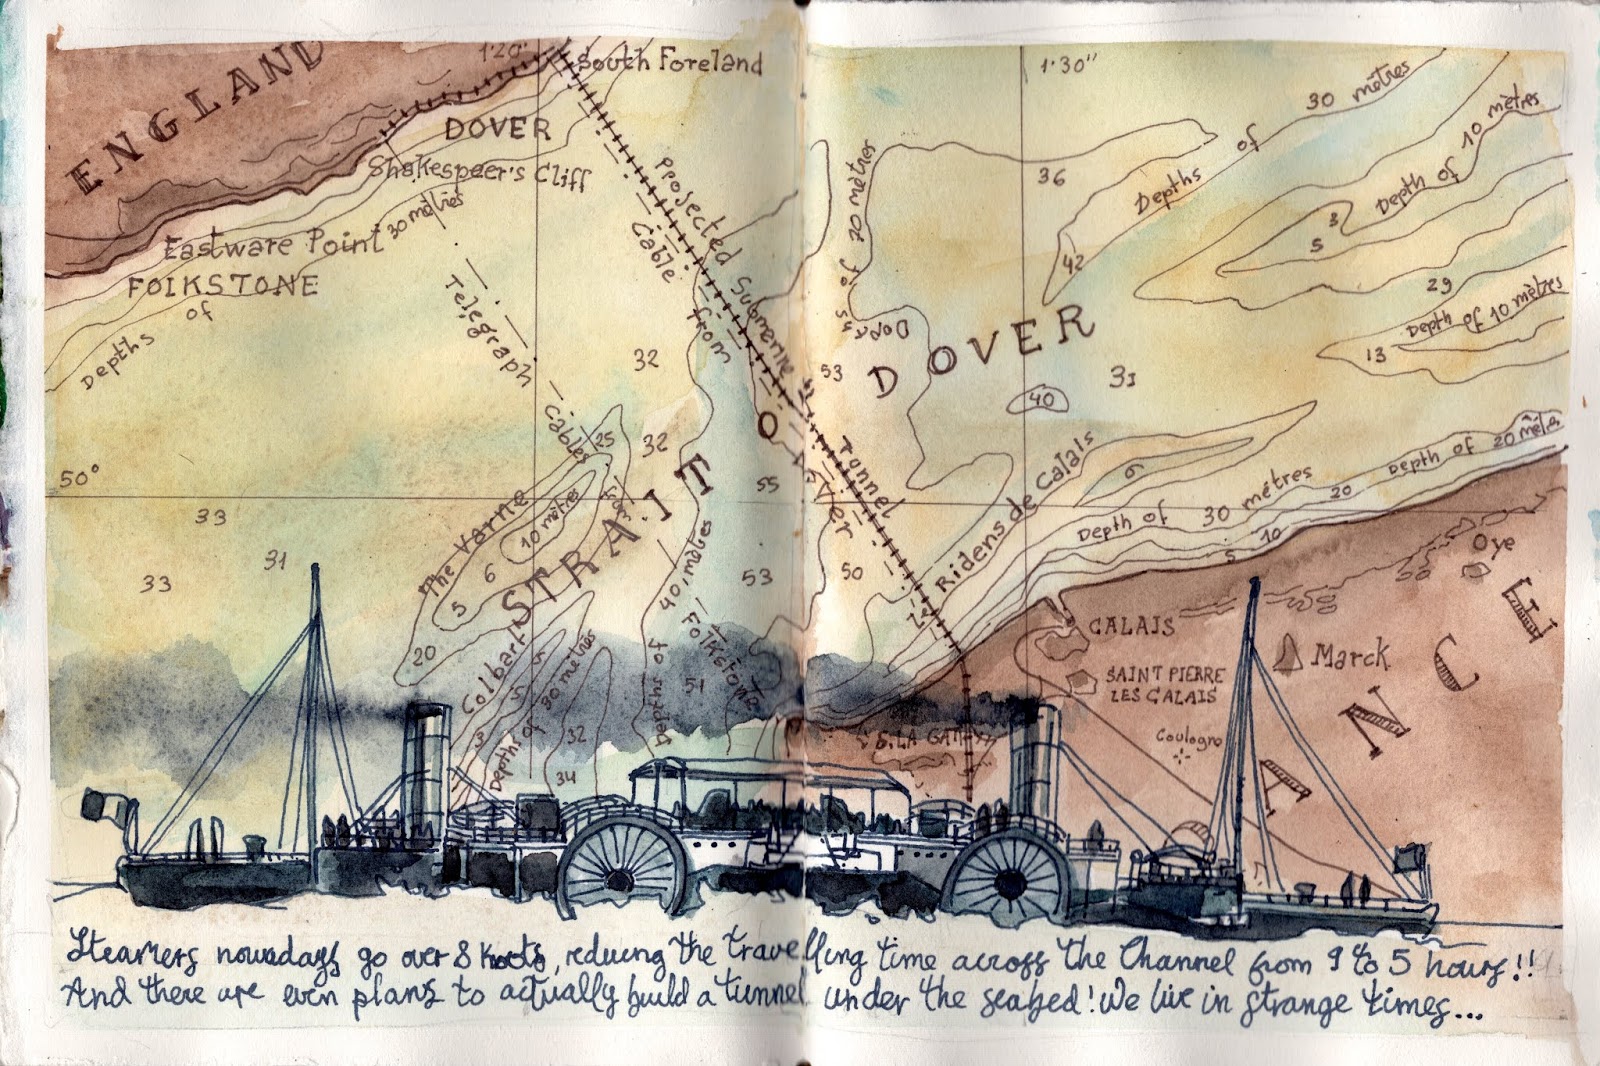 ENGLAND
1·20'
South Foreland
1·30"
DOVER
Shakespeer's Cliff
30 mètres
Eastware Point
FOlKSTONE
Depths of
Telegraph Cables from
Projected Submerine Tunnel
Cable from
Depths of 20 mètres
Depths of 30 mètres
Depth of 10 mètres
36
42
3
5
29
Depth of 10 mètres
13
32
53
31
40
STRAIT OF DOVER
32
25
50°
33
31
33
55
53
50
The Varne
10 mètres
6
5
20
Colbart
5
5
3
Depths of 30 mètres
32
34
Depths of 40 mètres
Folkstone
51
Ridens de Calais
6
Depth of 30 métres
Depth of 20 mètres
20
10
5
25
CALAIS
SAINT PIERRE
LES CALAIS
Coulogne
Marck
Oye
FRANCE
Steamers nowadays go over 8 knots, reducing the travelling time across the Channel from 9 to 5 hours!!
And there are even plans to actually build a tunnel under the seabed! We live in strange times...